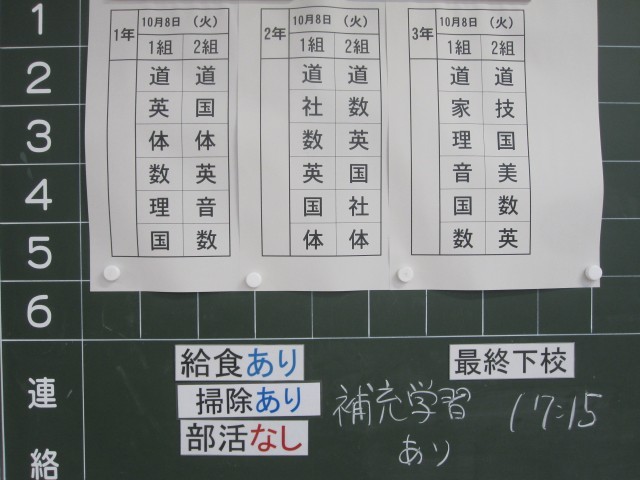 1
2
3
4
5
6
連絡
1年 10月8日 (火)
1組 2組
道 道
英 国
体 体
数 英
理 音
国 数
2年 10月8日 (火)
1組 2組
道 道
社 数
数 英
英 国
国 社
体 体
3年 10月8日 (火)
1組 2組
道 道
家 技
理 国
音 美
国 数
数 英
給食あり
掃除あり
部活なし
補充学習
あり
最終下校
17:15